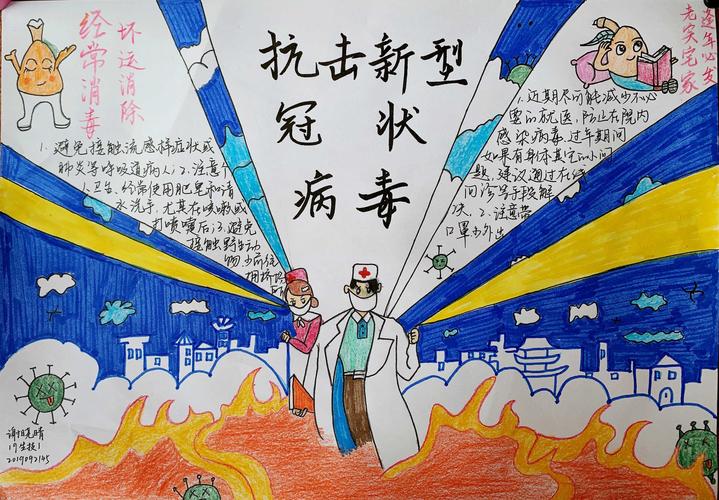 坏运消除
经常消毒
抗击新型
冠状
病毒
逢年必
老实宅家
1. 避免接触流感样症状或
肺炎等呼吸道病人;2.注意个
人卫生、经常使用肥皂和清
水洗手,尤其在咳嗽或
打喷嚏后;3.避免
接触野生动
物.少前往
拥挤场
所
1.近期尽可能减少不必
要的就医,防止在院内
感染病毒.过年期间
如果有身体其它的小问
题,建议通过在线
问诊等手段解
决。2.注意带
口罩少外出
19生技1
2019092145